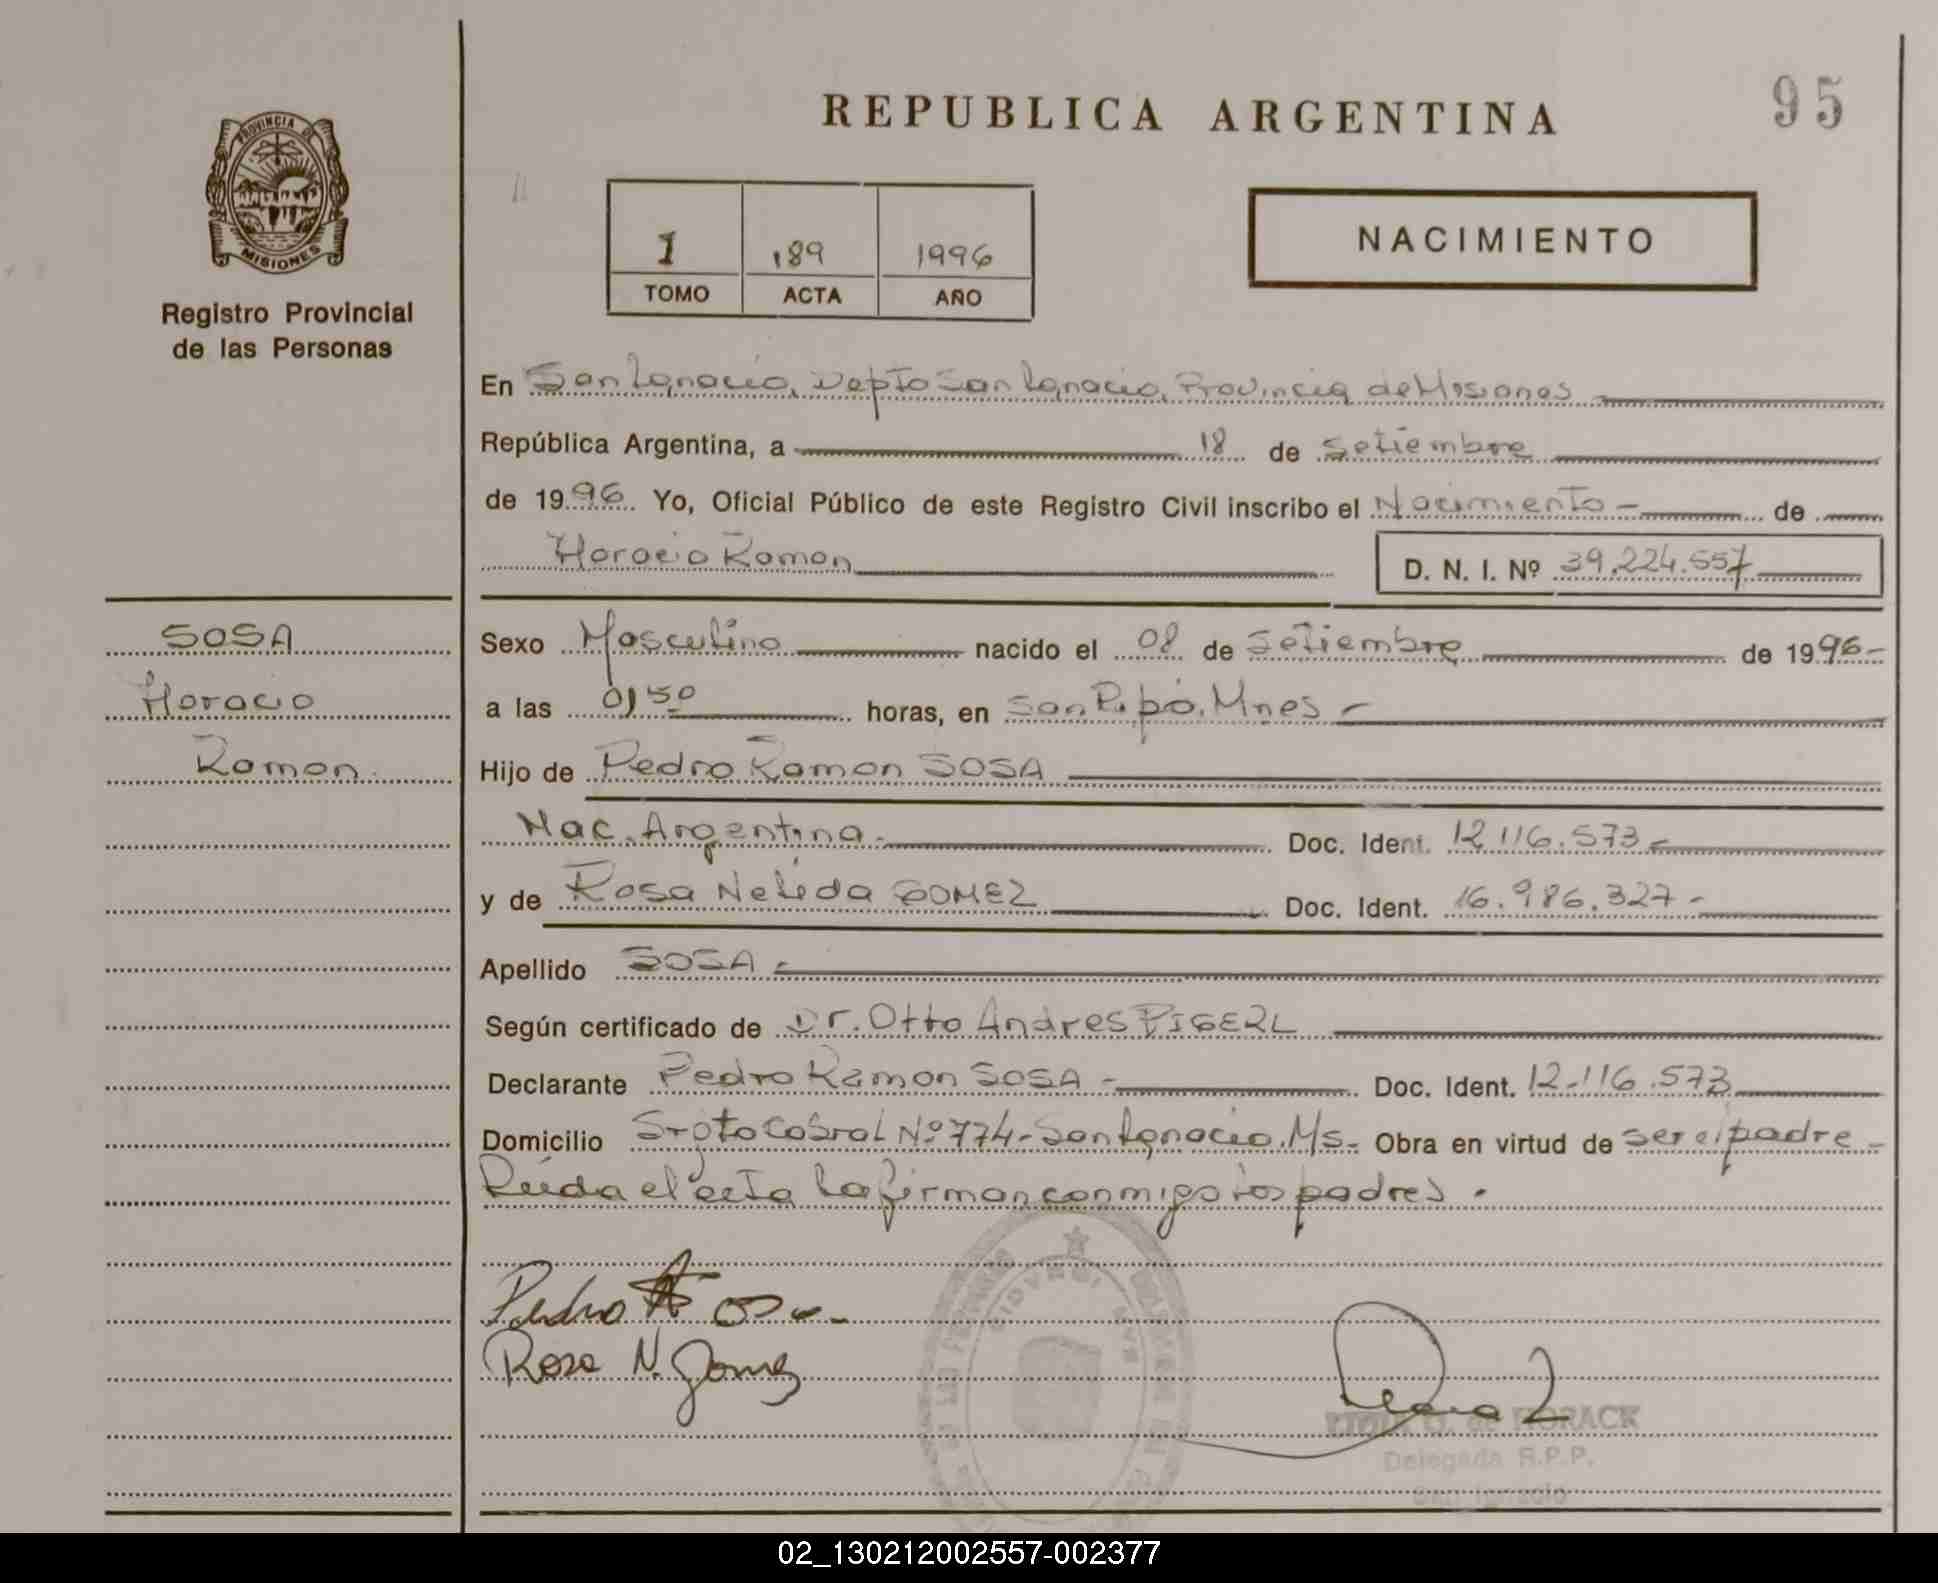 REPUBLICA ARGENTINA
95
PROVINCIA DE
MISIONES
Registro Provincial
de las Personas
1 189 1996
TOMO ACTA AÑO
NACIMIENTO
En San Ignacio, Depto San Ignacio, Provincia de Misiones
República Argentina, a 18 de Setiembre
de 1996 Yo, Oficial Público de este Registro Civil inscribo el Nacimiento - de
Horacio Ramon D. N. I. Nº 39.224.557
SOSA
Horacio
Ramon
Sexo Masculino nacido el 08 de Setiembre de 1996-
a las 01,50 horas, en San Ipó, Mnes -
Hijo de Pedro Ramon SOSA
Nac. Argentina.- Doc. Ident. 12.116.573-
y de Rosa Nelida GOMEZ Doc. Ident. 16.986.327-
Apellido SOSA-
Según certificado de Dr. Otto Andres
Declarante Pedro Ramon SOSA - Doc. Ident. 12.116.573
Domicilio Srgto Cabral Nº 774- San Ignacio, Ms- Obra en virtud de ser el padre-
Leida el acta la firman conmigo los padres.
Pedro R Sosa
Rosa N. Gomez
de HORACK
Delegada R.P.P.
San Ignacio
02_130212002557-002377